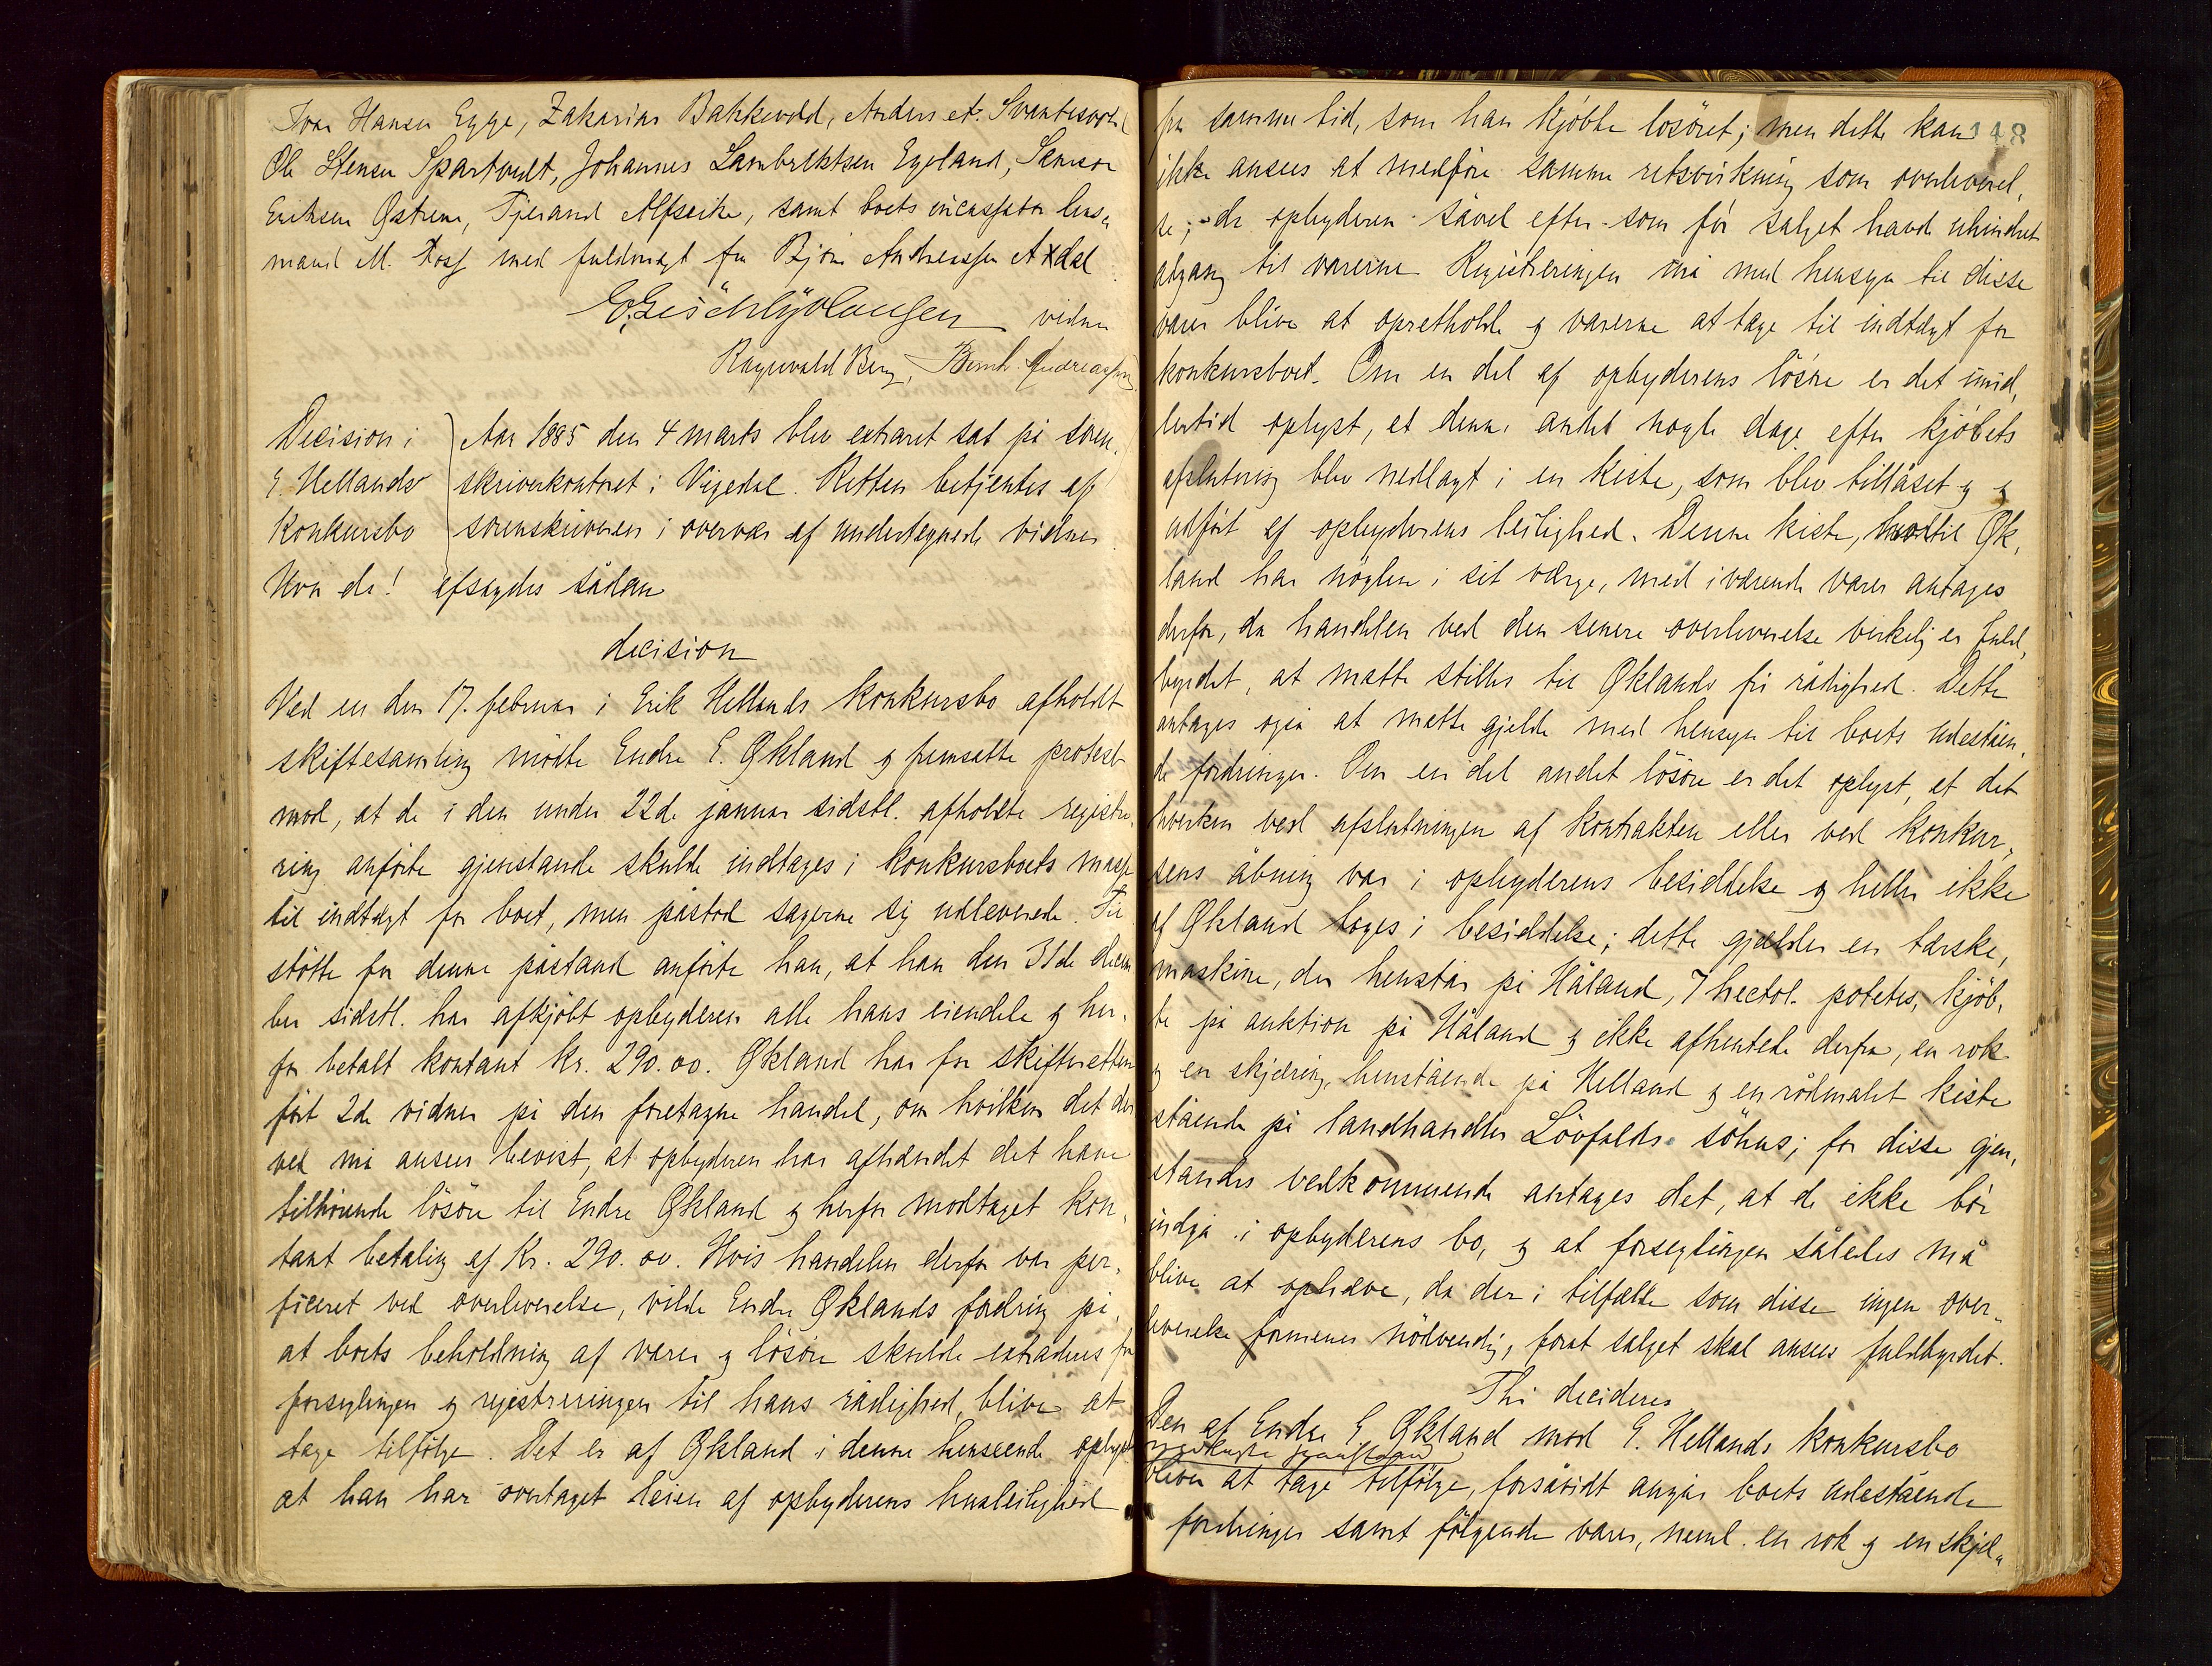 Ivar Hansen Egge, Zakarias Bakkevold, Anders A. Svantesvold
Ole Stensen Spartvedt, Johannes Lambrektsen Egeland, Samson
Eriksen Østrem, Tjerand Alfseike, samt boets incassator lens„
mand M. Foss med fuldmagt fra Björn Andreassen Axdal
vidner
Ragnvald Berg, Bernh. Andreassen
Decision i
E. Hellands
Konkursbo
Hvor da!
Aar 1885 den 4 marts blev extraret sat på soren„
skriverkontoret i Vigedal. Retten betjentes af
sorenskriveren i overvær af undertegnede vidner
afsagdes sådan
decision
Ved en den 17. februar i Erik Hellands konkursbo afholdt
skiftesamling mödte Endre E. Økland og fremsatte protest
mod, at de i den under 22de januar sidstl. afholdte registre„
ring anförte gjenstande skulde indtages i konkursboets masse
til indtægt for boet, men påstod sagerne sig udleverede. Til
stötte for denne påstand anförte han, at han den 31de decem
ber sidstl. har afkjöbt opbyderen alle hans eiendele og her„
for betalt kontant kr. 290.00. Økland har for skifteretten
fört 2de vidner på den foretagne handel, om hvilken det der
ved må ansees bevist, at opbyderen har afhændet det ham
tilhörende lösöre til Endre Økland og herfor modtaget kon„
tant betaling af Kr. 290.00. Hvis handelen derfor var per„
ficeret ved overleverelse, vilde Endre Øklands fordring på,
at boets beholdning af varer og lösöre skulde extraderes fra
forseglingen og registreringen til hans rådighed, blive at
tage tilfölge. Det er af Økland i denne henseende oplyst
at han har overtaget leien af opbyderens husleilighed
148
fra samme tid, som han kjöbte lösöret; men dette kan
ikke ansees at medföre samme retsvirkning som overleverel„
se; da opbyderen såvel efter som för salget havde uhindret
adgang til varerne. Registreringen må med hensyn til disse
varer blive at opretholde og varerne at tage til indtægt for
konkursboet. Om en del af opbyderens lösöre er det imid„
lertid oplyst, at denne antal nogle dage efter kjöbets
afslutning blev nedlagt i en kiste, som blev tillåset og
udfört af opbyderens leilighed. Denne kiste, hvortil Øk„
land har nöglen i sit værge, med iværende varer antages
derfor, da handelen ved den senere overleverelse virkelig er fuld„
byrdet, at matte stilles til Øklands fri rådighed. Dette
antages også at matte gjelde med hensyn til boets udeståen„
de fordringer. Om en del andet lösöre er det oplyst, at det
hverken ved afslutningen af kontrakten eller ved konkur„
sens åbning var i opbyderens besiddelse og heller ikke
af Økland toges i besiddelse; dette gjælder en tærske„
maskine, der henstår på Håland, 7 hectol. potetes, kjöb„
te på auktion på Håland og ikke afhentede derfra, en rok
og en skjæring, henstående på Helland og en rödmalet kiste
stående på landhandler Lövfalds söhus; for disse gjen„
standes vedkommende antages det, at de ikke bör
indgå i opbyderens bo, og at forseglingen således må
blive at ophæve, da der i tilfælde som disse ingen over„
leverelse formenes nödvendig, forat salget skal ansees fuldbyrdet.
Thi decideres
Den af Endre E. Økland mod E. Hellands konkursbo
bliver at tage tilfölge, forsåvidt angår boets udestående
fordringer samt fölgende varer, neml. en rok og en skjæ„